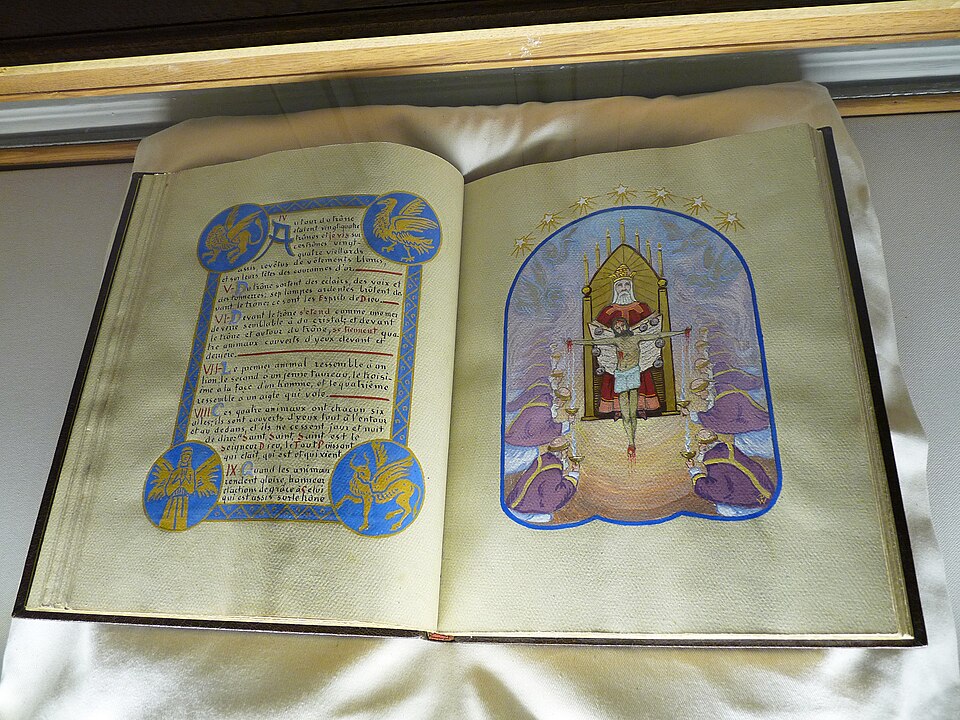 IV
Autour du trône
étaient vingt quatre
trônes et je vis sur
ces trônes vingt-
quatre vieillards
assis, revêtus de vêtements blancs,
et sur leurs têtes des couronnes d'or.
V- Du trône sortent des éclairs, des voix et
des tonnerres; sep lampes ardentes brûlent de
vant le trône: ce sont les Esprits de Dieu.
VI- Devant le trône s'étend comme une mer
de verre semblable à du cristal; et devant
le trône et autour du trône, se tiennent qua
tre animaux couverts d'yeux devant et
derrière.
VII- Le premier animal ressemble à un
lion, le second à un jeune taureau, le troisi-
ème a la face d'un homme, et le quatrième
ressemble à un aigle qui vole.
VIII Ces quatre animaux ont chacun six
ailes; ils sont couverts d'yeux tout à l'entour
et au dedans, et ils ne cessent jour et nuit
de dire: Saint, Saint, Saint est le
Seigneur Dieu, le Tout Puissant
qui était, qui est et qui vient
IX Quand les animaux
rendent gloire, honneur
et actions de grâce à Celui
qui est assis sur le trône